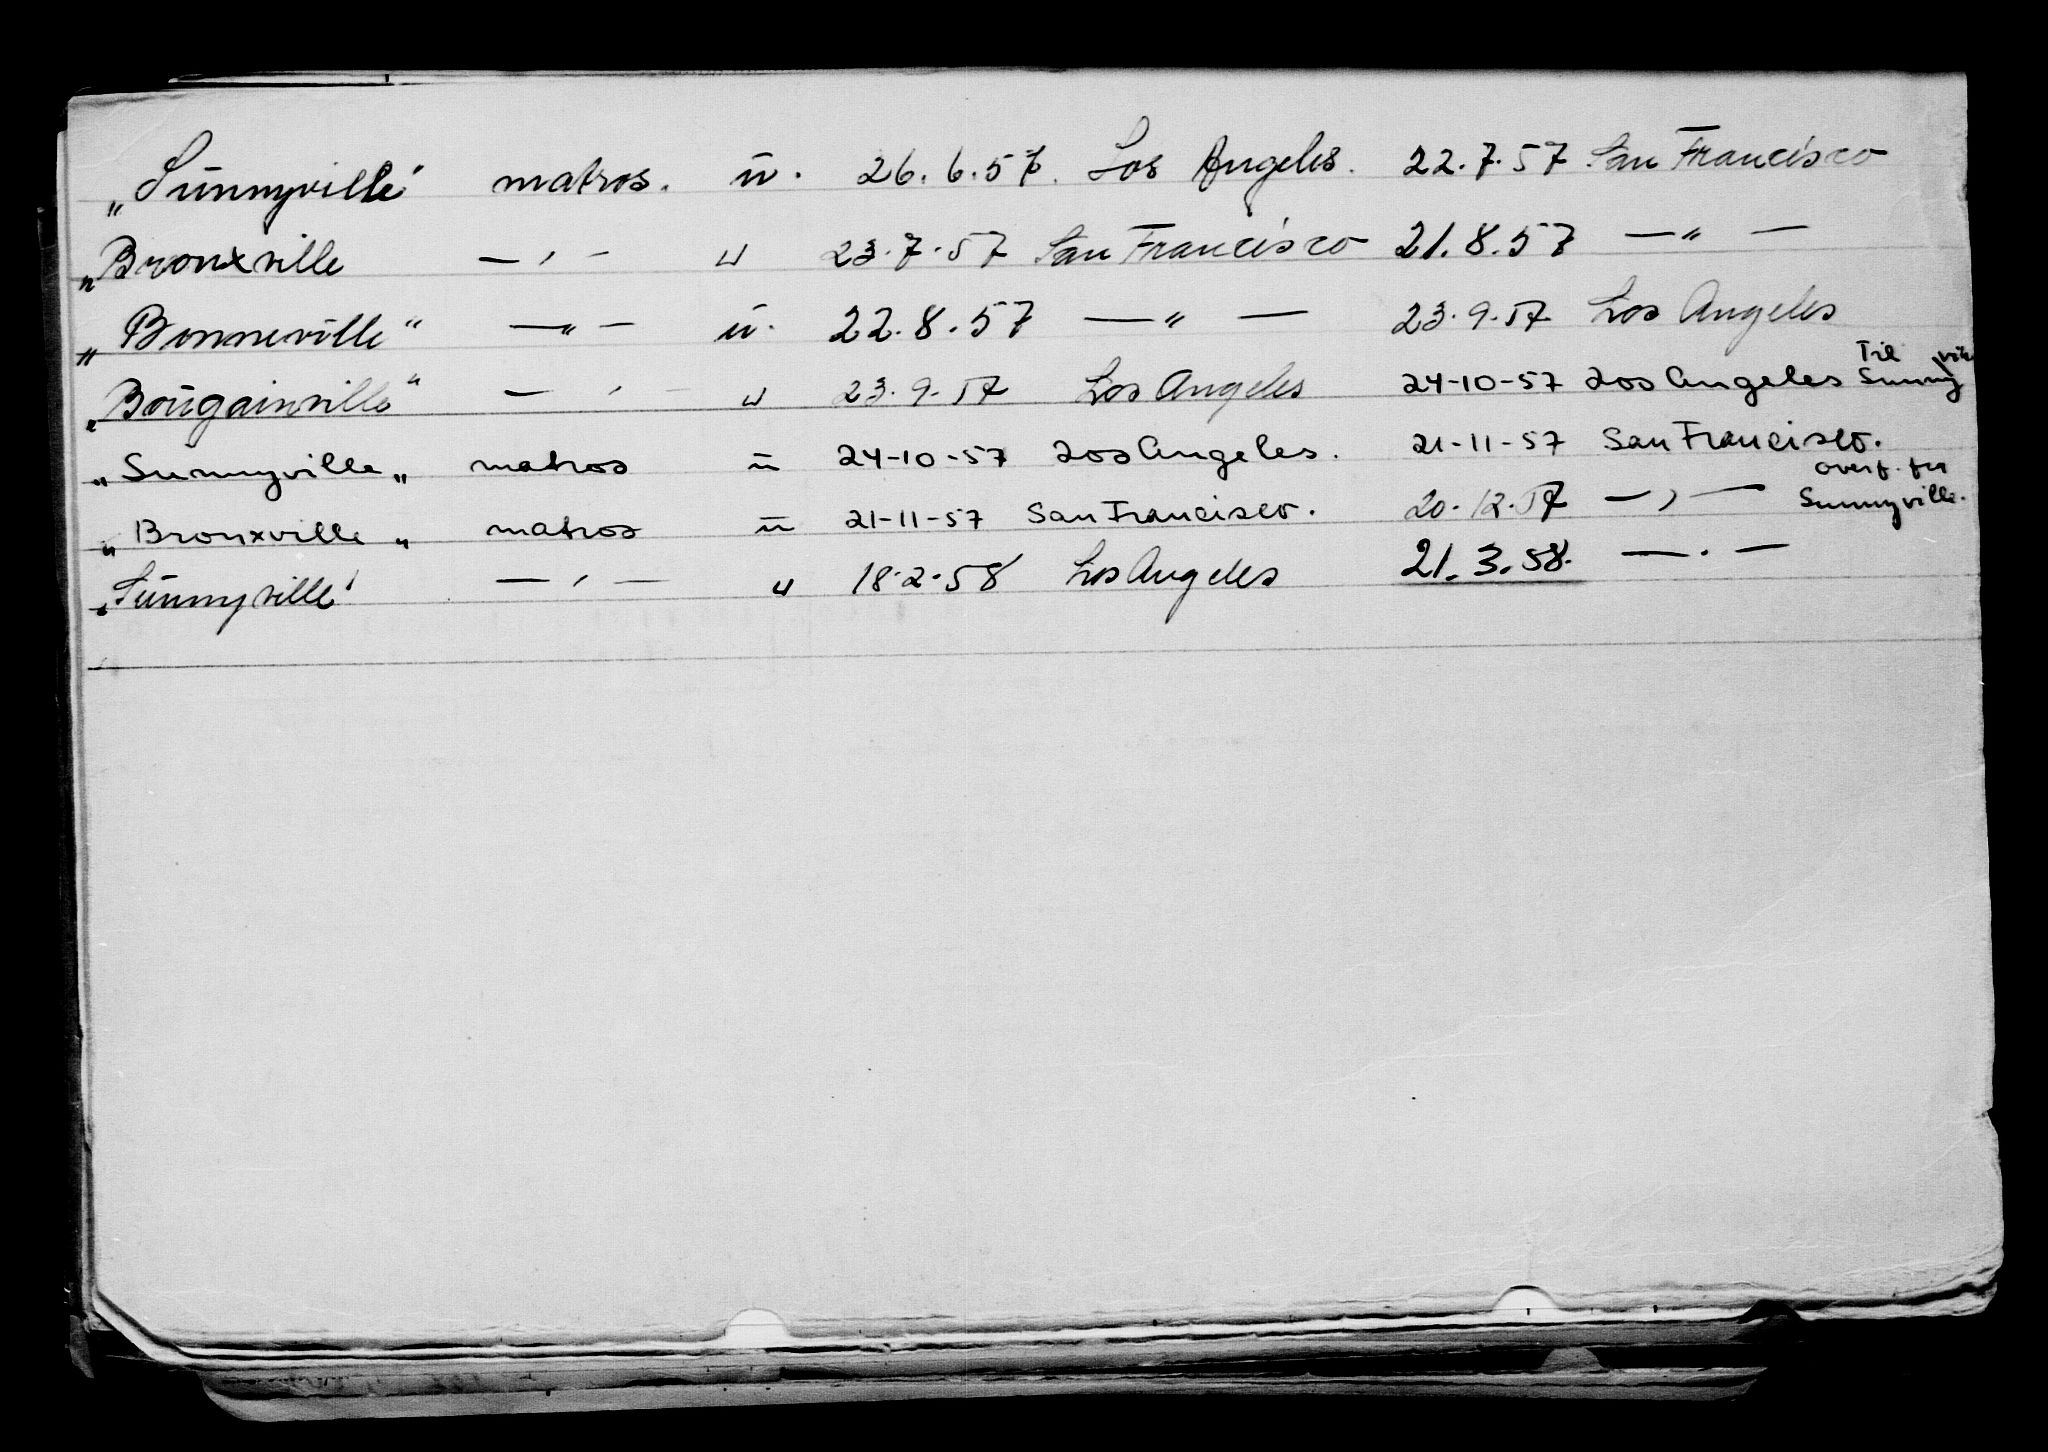 „Sünnyville“ matros. ü. 26.6.57. Los Angeles. 22.7.57 San Francisco
„Bronxville — ' — u 23.7.57 San Francisco 21.8.57 — „ —
„Bonneville“ — „ — ü. 22.8.57 — „ — 23.9.57 Los Angeles
„Boügainville“ — ' — u 23.9.57 Los Angeles 24-10-57 Los Angeles Til Sunnyville
„Sunnyville„ matros ū 24-10-57 Los Angeles. 21-11-57 San Francisco.
„Bronxville„ matros ū 21-11-57 San Francisco. 20.12.57 — , — overf. fra Sunnyville.
„Sünnyville' — ' — u 18.2.58 Los Angeles 21.3.58. — . —